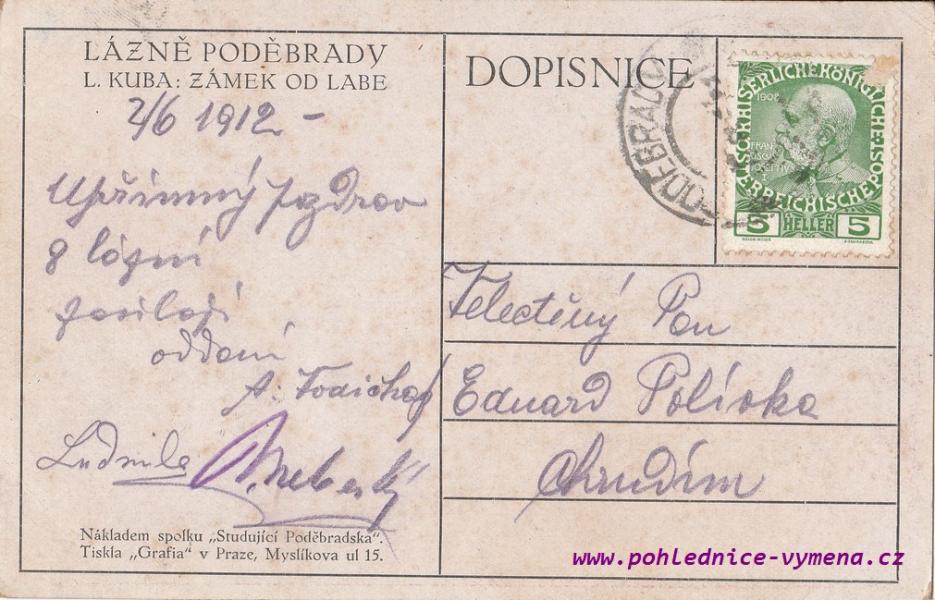 LÁZNĚ PODĚBRADY
L. KUBA: ZÁMEK OD LABE
2/6 1912 –
Upřímný pozdrav
z lázní
posílají
oddaní
Ludmila
Nákladem spolku „Studující Poděbradska“.
Tiskla „Grafia“ v Praze, Myslíkova ul 15.
DOPISNICE
PODĚBRADY
KAISERLICHE KÖNIGLICHE
ÖSTERREICHISCHE POST
1908
5 HELLER 5
Velectěný Pan
Eduard Polívka
Chrudim
www.pohlednice-vymena.cz